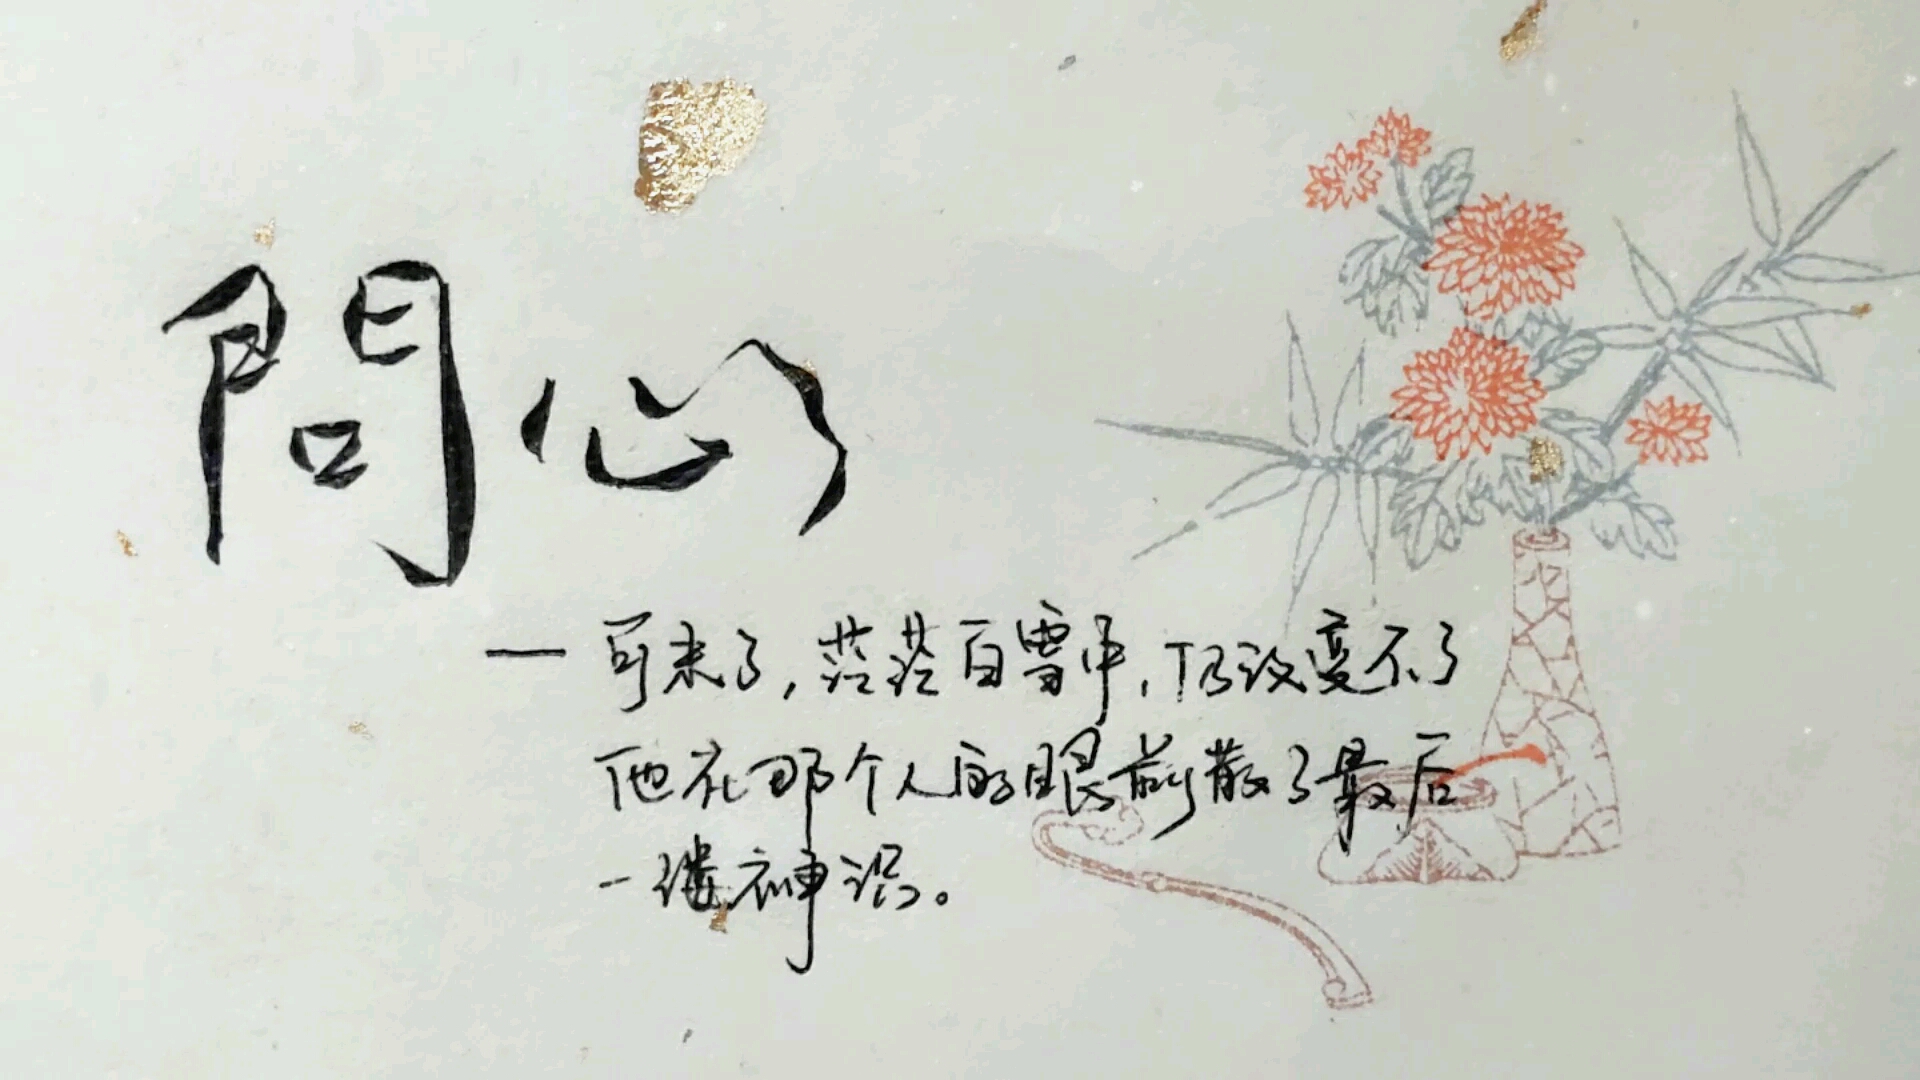 問心
一可来了,茫茫白雪中,仍改变不了
他在那个人的眼前散了最后
一缕神识。